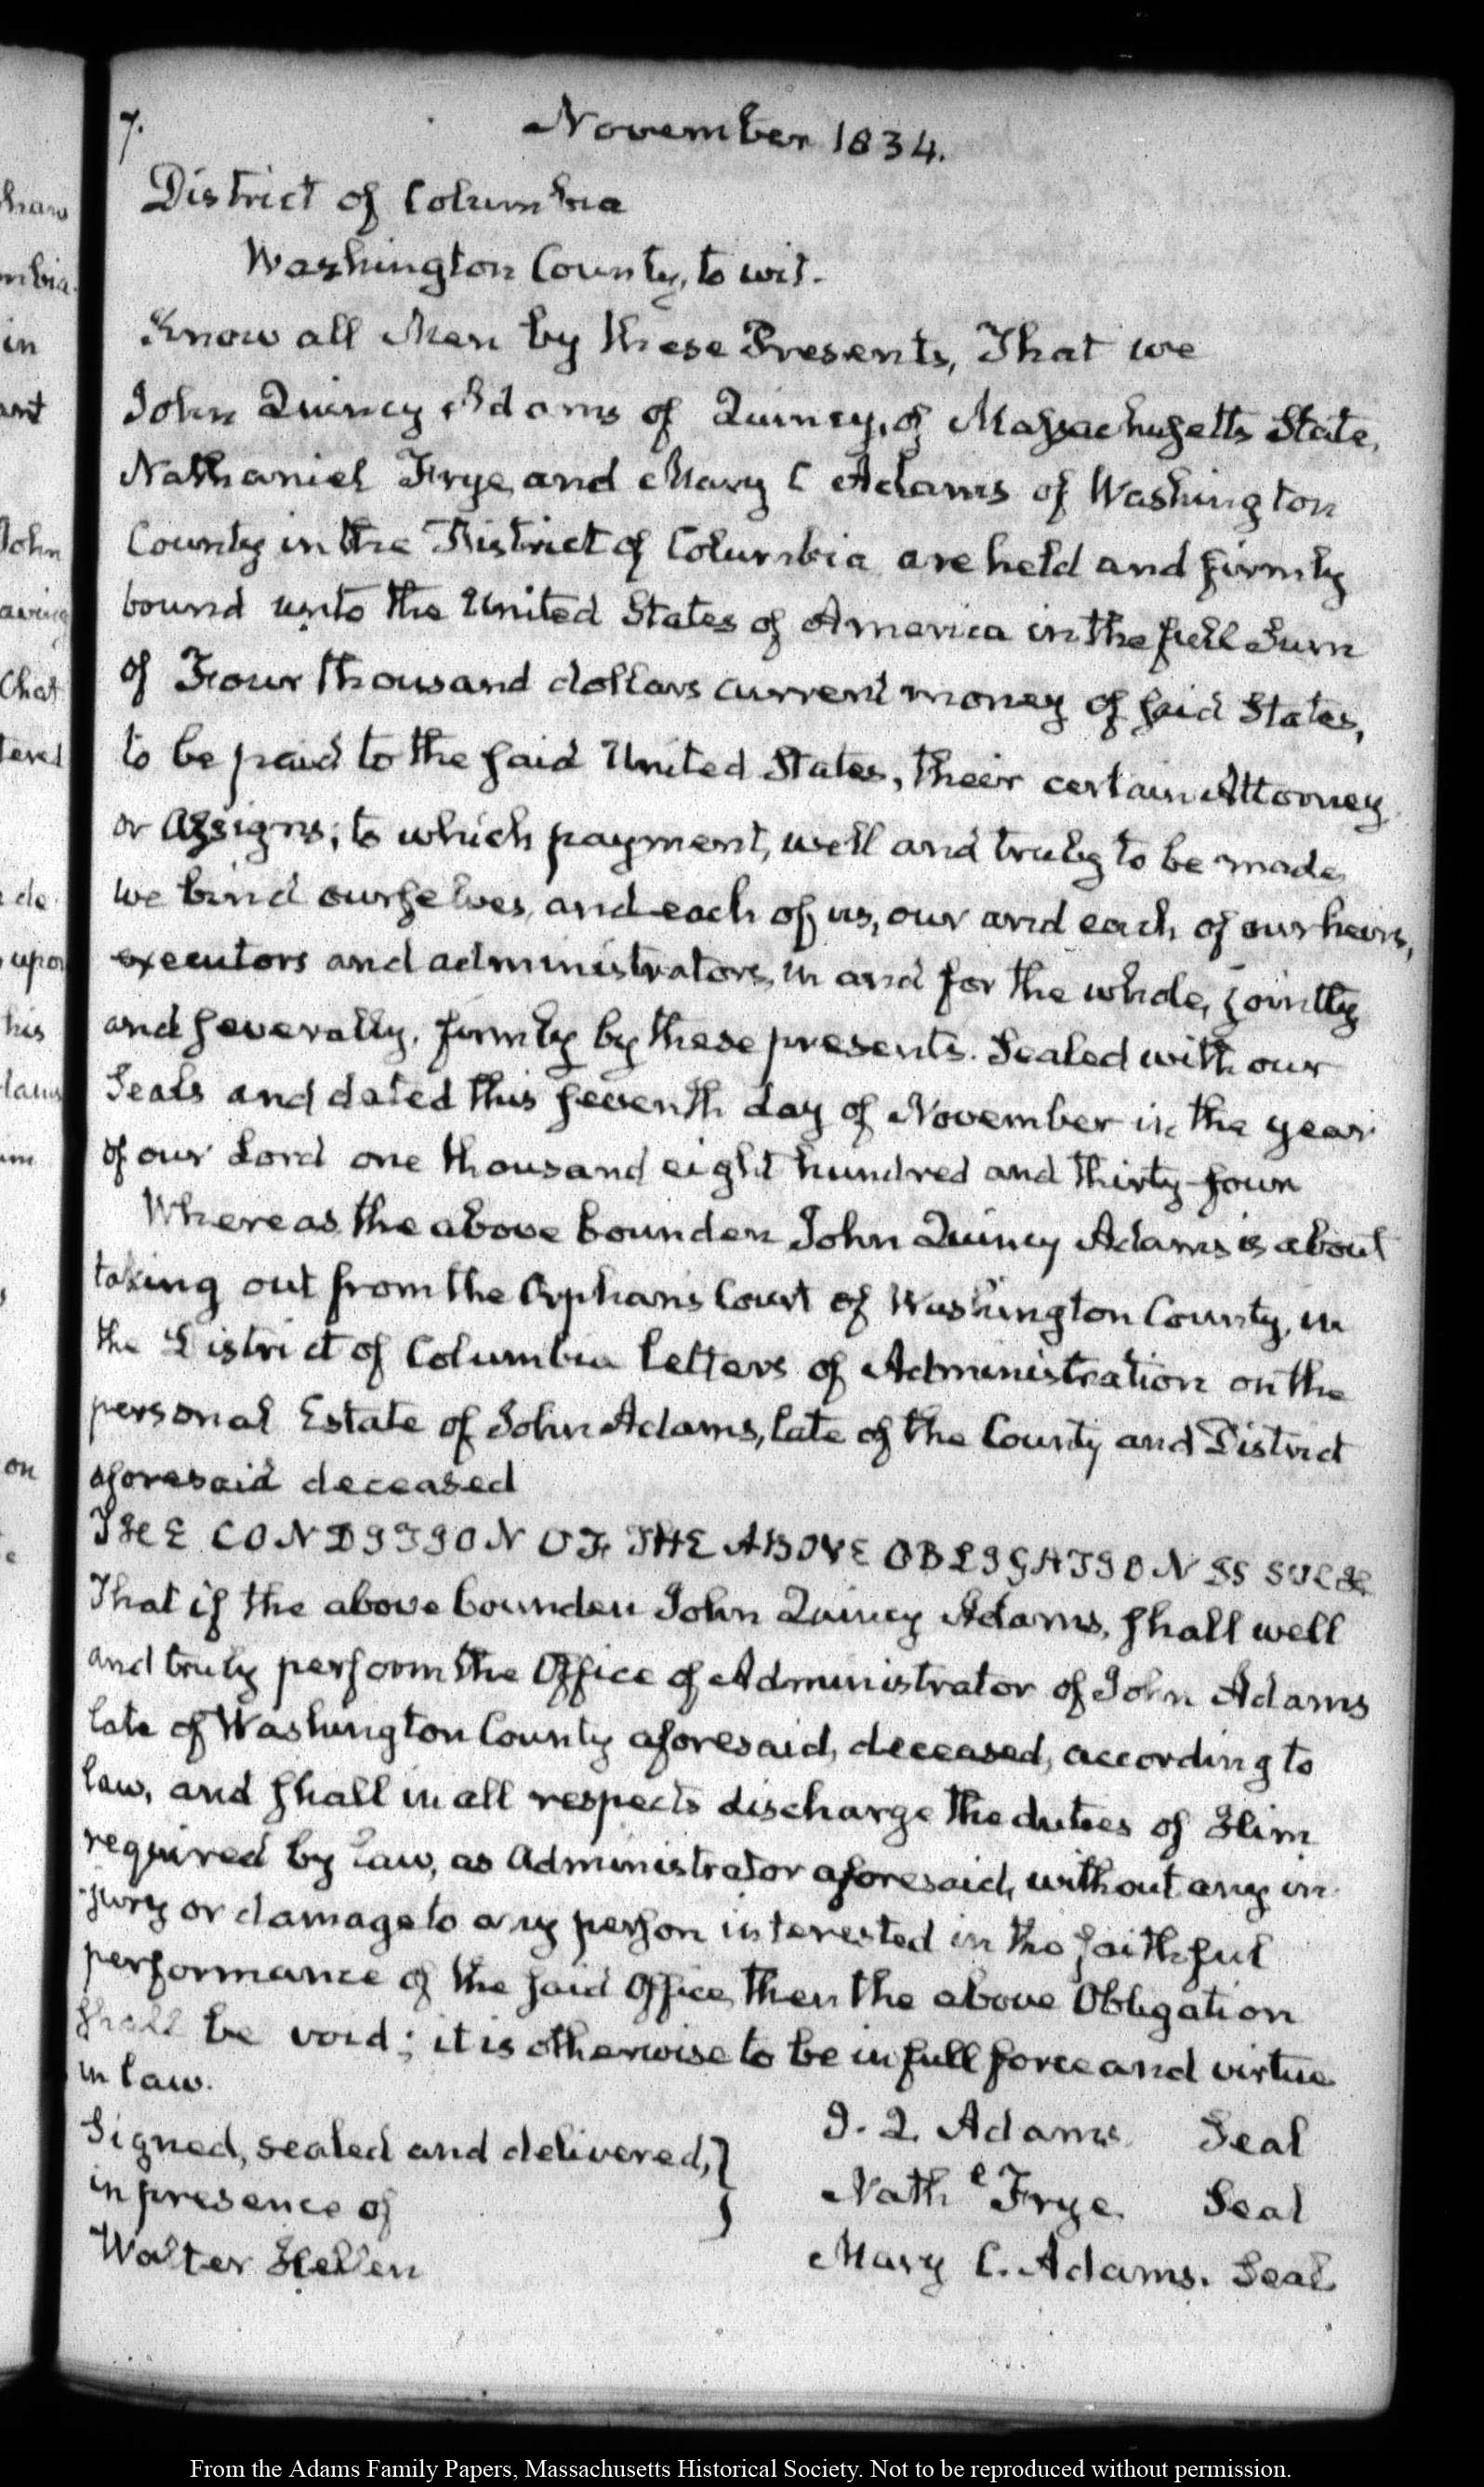 7. November 1834.
District of Columbia
Washington County, to wit.
Know all Men by these Presents, That we
John Quincy Adams of Quincy, of Massachusetts State,
Nathaniel Frye, and Mary C Adams of Washington
County in the District of Columbia are held and firmly
bound unto the United States of America in the full Sum
of Four thousand dollars current money of said States,
to be paid to the said United States, their certain Attorney
or Assigns; to which payment, well and truly to be made
we bind ourselves, and each of us, our and each of our heirs,
executors and administrators, in and for the whole, jointly
and severally, firmly by these presents. Sealed with our
Seals and dated this seventh day of November in the year
of our Lord one thousand eight hundred and thirty-four
Whereas the above bounden John Quincy Adams is about
taking out from the Orphans Court of Washington County, in
the District of Columbia letters of Administration on the
personal Estate of John Adams, late of the County and District
aforesaid deceased
THE CONDITION OF THE ABOVE OBLIGATION IS SUCH
That if the above bounden John Quincy Adams, shall well
and truly perform the Office of Administrator of John Adams
late of Washington County aforesaid, deceased, according to
law, and shall in all respects discharge the duties of Him
required by law, as Administrator aforesaid, without any in-
-jury or damage to any person interested in the faithful
performance of the said Office, then the above Obligation
shall be void; it is otherwise to be in full force and virtue
in law.
Signed, sealed and delivered, } J. Q. Adams. Seal
in presence of Nath e Frye. Seal
Walter Hellen Mary C. Adams. Seal
From the Adams Family Papers, Massachusetts Historical Society. Not to be reproduced without permission.